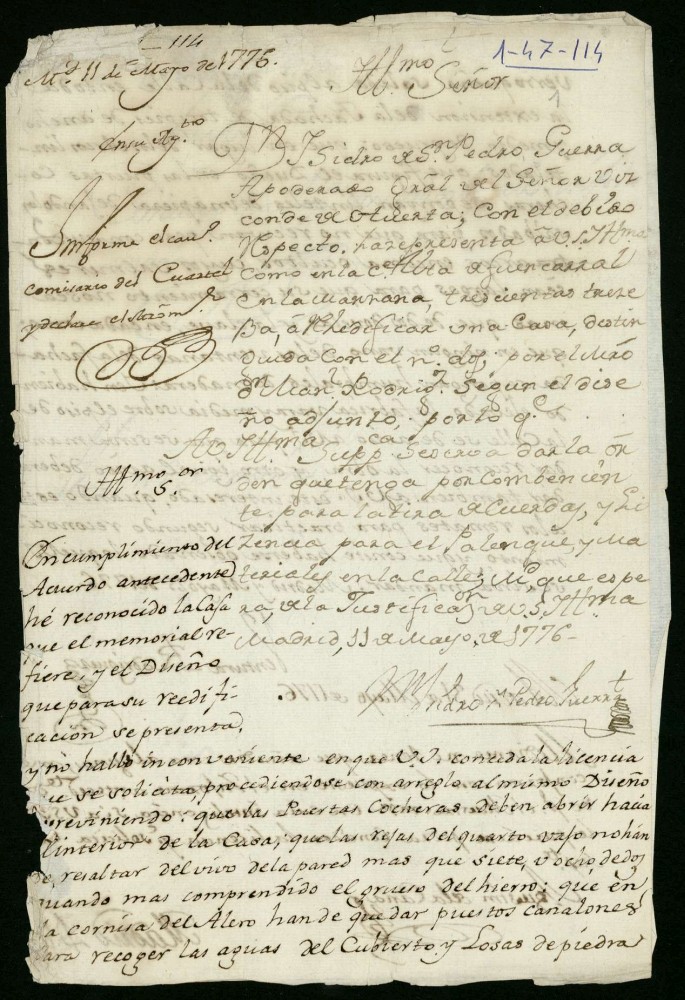 114
1-47-114
Md. 11 de Mayo de 1776.
Illmo
Señor
En su Aytto
Dn Isidro de Sn Pedro Guerra
Apoderado Gral del Señor Viz
conde de Huerta; Con el debido
Respecto, representa á V.S. Illma
como en la Ce Alta de fuencarral
En la Manzana, trescientas trece
Ba, á Rhedificar una Casa, distin
Guida con el n.º dos, por el Mro
dn Man.l Rodrig.z segun el dise
ño adjunto, por lo q.e
A V.S. Illma Suppca se sirva dar la ôr
den que tenga por Combenien
te para la tira de Cuerdas, y Li
zencia para el Palenque, y Ma
teriales en la Calle; M.d que espe
ra, de la Justificaon de V.S. Illma
Madrid, 11 de Mayo, de 1776-
Isidro Sn Pedro Guerra
Informe el cavº
comisario del Cuartel
y declare el
Illmo Sor
En cumplimiento del
Acuerdo antecedente
hé reconocido la Casa
que el memorial re-
fiere, y el Diseño
que para su reedifi-
cación se presenta,
y no hallo inconveniente en que V.I. conceda la licencia
que se solicita, procediendose con arreglo al mismo Diseño
previniendo: que las Puertas Cocheras deben abrir hacia
l'interior de la Casa; que las rejas del quarto vajo no hán
de resaltar del vivo de la pared mas que siete, ú ocho dedos
quando mas comprendido el grueso del hierro: que en
la cornisa del Alero han de quedar puestos canalones
para recoger las aguas del Cubierto y Losas de piedra